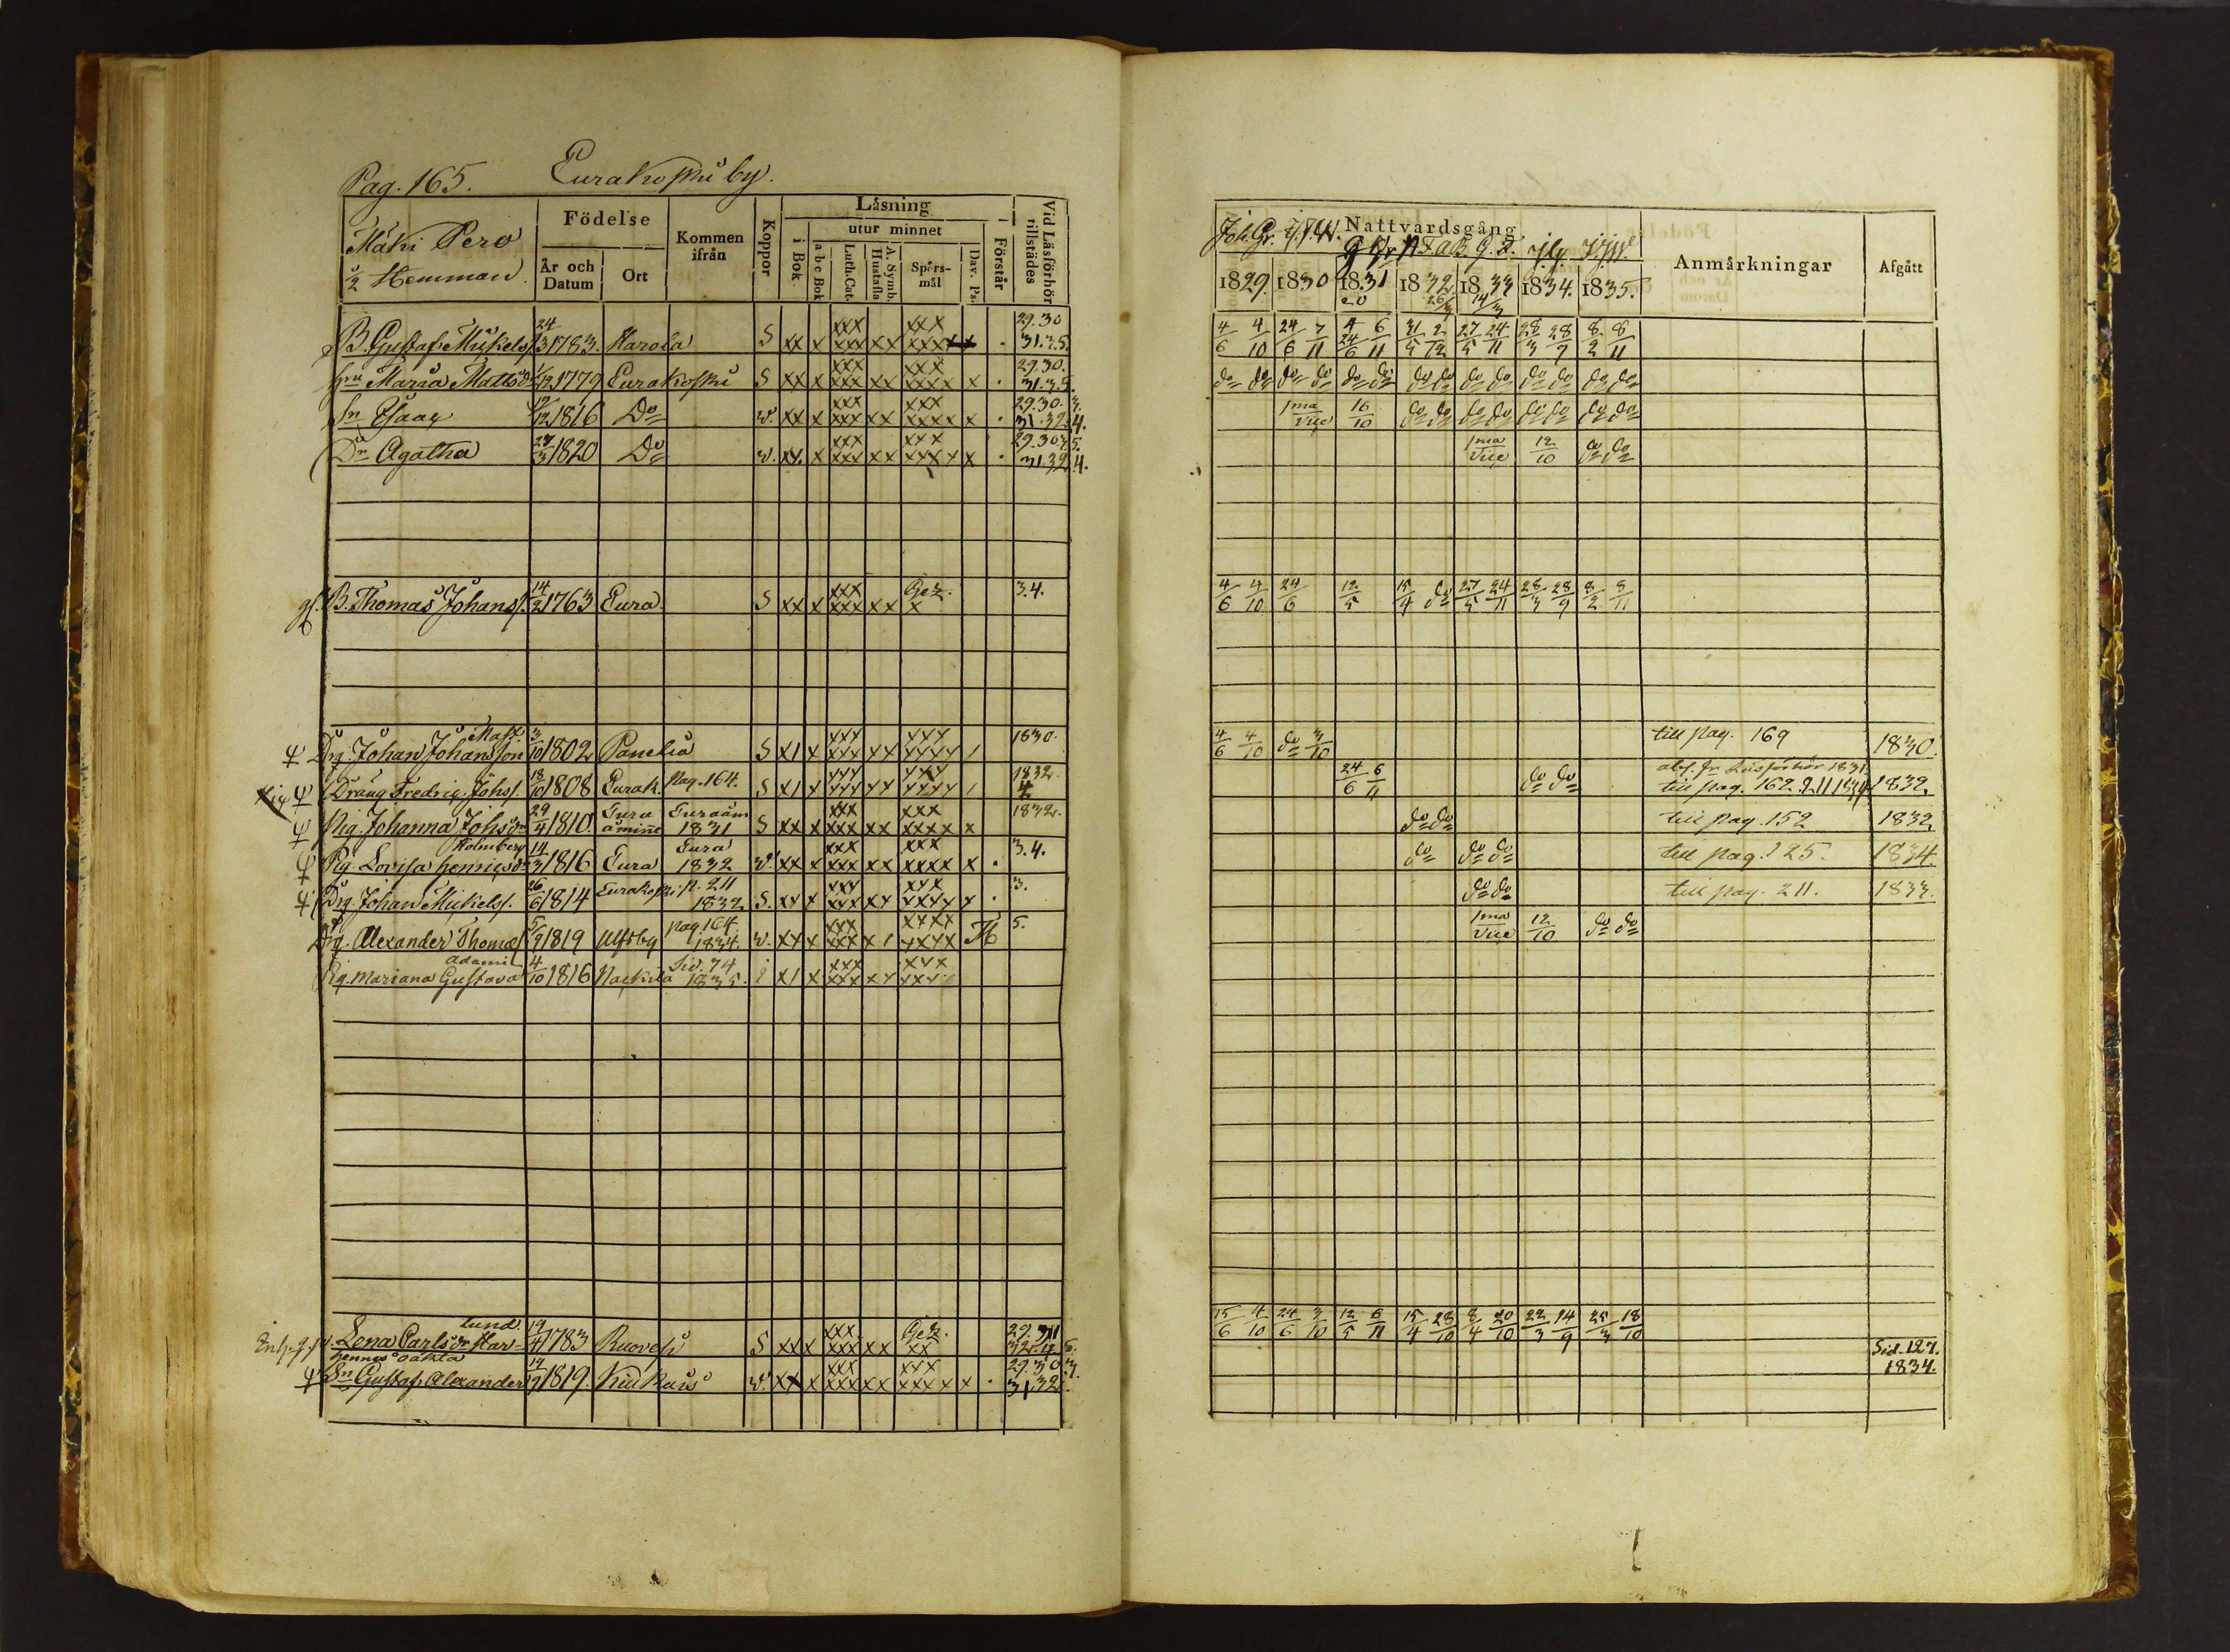 Pag. 165. Eurakoski by.
Mäki Pero
½ Hemman.
Födelse
År och Datum
Ort
Kommen ifrån
Koppor
Läsning
i Bok.
utur minnet
a b c Bok
Luth. Cat.
A. Symb. Hustafla
Spörs-mål
Dav. Ps.
Förstår
Vid Läsförhör tillstädes
B. Gustaf Mickels. 24/3 1783. Harola S xx x xxx xxx xx xxx xxxx 29.30 31.3.5.
hru Maria Mattsdr 1/12 1779 Eurakoski S xx x xxx xxx xx xxx xxxx x 29.30. 31.3.5.
Sn Isaac 1816 Do v. xx x xxx xxx xx xxx xxxx x 29.30.3. 31.32.4.
Dr Agatha 27/3 1820 Do v. xx. x xxx xxx xx xxx xxxx x 29.30.3.5. 31.32.4.
B. Thomas Johans. 14/2 1763 Eura. S xx x xxx xxx xx Gez. x 3.4.
Drg. Johan Johansson Mast. 3/10 1802 Panelia S x1 x xxx xxx xx xxx xxxx 1 1830.
Dräng Fredric Johs. 18/10 1808 Eurak. Pag. 164. S x1 x xxx xxx xx xxx xxxx 1 1832. 4
Pig. Johanna Johsdr 29/4 1810. Eura åminne Euraåm 1831 S xx x xxx xxx xx xxx xxxx x 1832.
Pig. Lovisa Henricsdr Holmberg 14/3 1816 Eura Eura 1832 v. xx x xxx xxx xx xxx xxxx x 3.4.
Drg. Johan Mickels. 26/6 1814 Eurakoski p. 211 1832 S. xx x xxx xxx xx xxx xxxx x 3.
Drg. Alexander Thomas. 5/9 1819 Ulfsby pag. 164. 1834. v. xx x xxx xxx x1 xxxx xxxx 5.
Pig. Mariana Gustava Adamsd. 4/10 1816 Nackila Sid. 74 1835. x1 x xxx xxx xx xxx xxx
Lena Carlsdr Lund. 19/4 1783 Ruovesi S xx x xxx xxx xx Gez. xx 29.
hennes oäkta
Sn Gustaf Alexander 19/9 1819. Kiukais v. xx x xxx xxx xx xxx xxxx x 29.30.3. 31.32.
Nattvardsgång
Anmärkningar
Afgått
1829. 1830 1831 1832. 1833 1834. 1835.
4/6 4/10 24/6 7/11 4/6 24/6 6/11 31/5 2/12 27/5 24/11 28/3 28/9 8/2 8/11
do do do do do do do do do do do do do do
1ma Vice 16/10 do do do do do do do do
1ma Vice 12/10 do do
4/6 4/10 24/6 12/5 15/4 do 27/5 24/11 28/3 28/9 8/2 8/11
4/6 4/10 do 3/10 till pag. 169 1830.
24/6 6/11 do do abs. fr Läsförhör 1831. till pag. 162. 1832.
do do till pag. 152 1832
do do do till pag. 125. 1834.
do do till pag. 211. 1833.
1ma Vice 12/10 do do
15/6 4/10 24/6 3/10 12/5 6/11 15/4 28/10 8/4 20/10 22/3 14/9 25/3 18/10
Sid. 127. 1834.